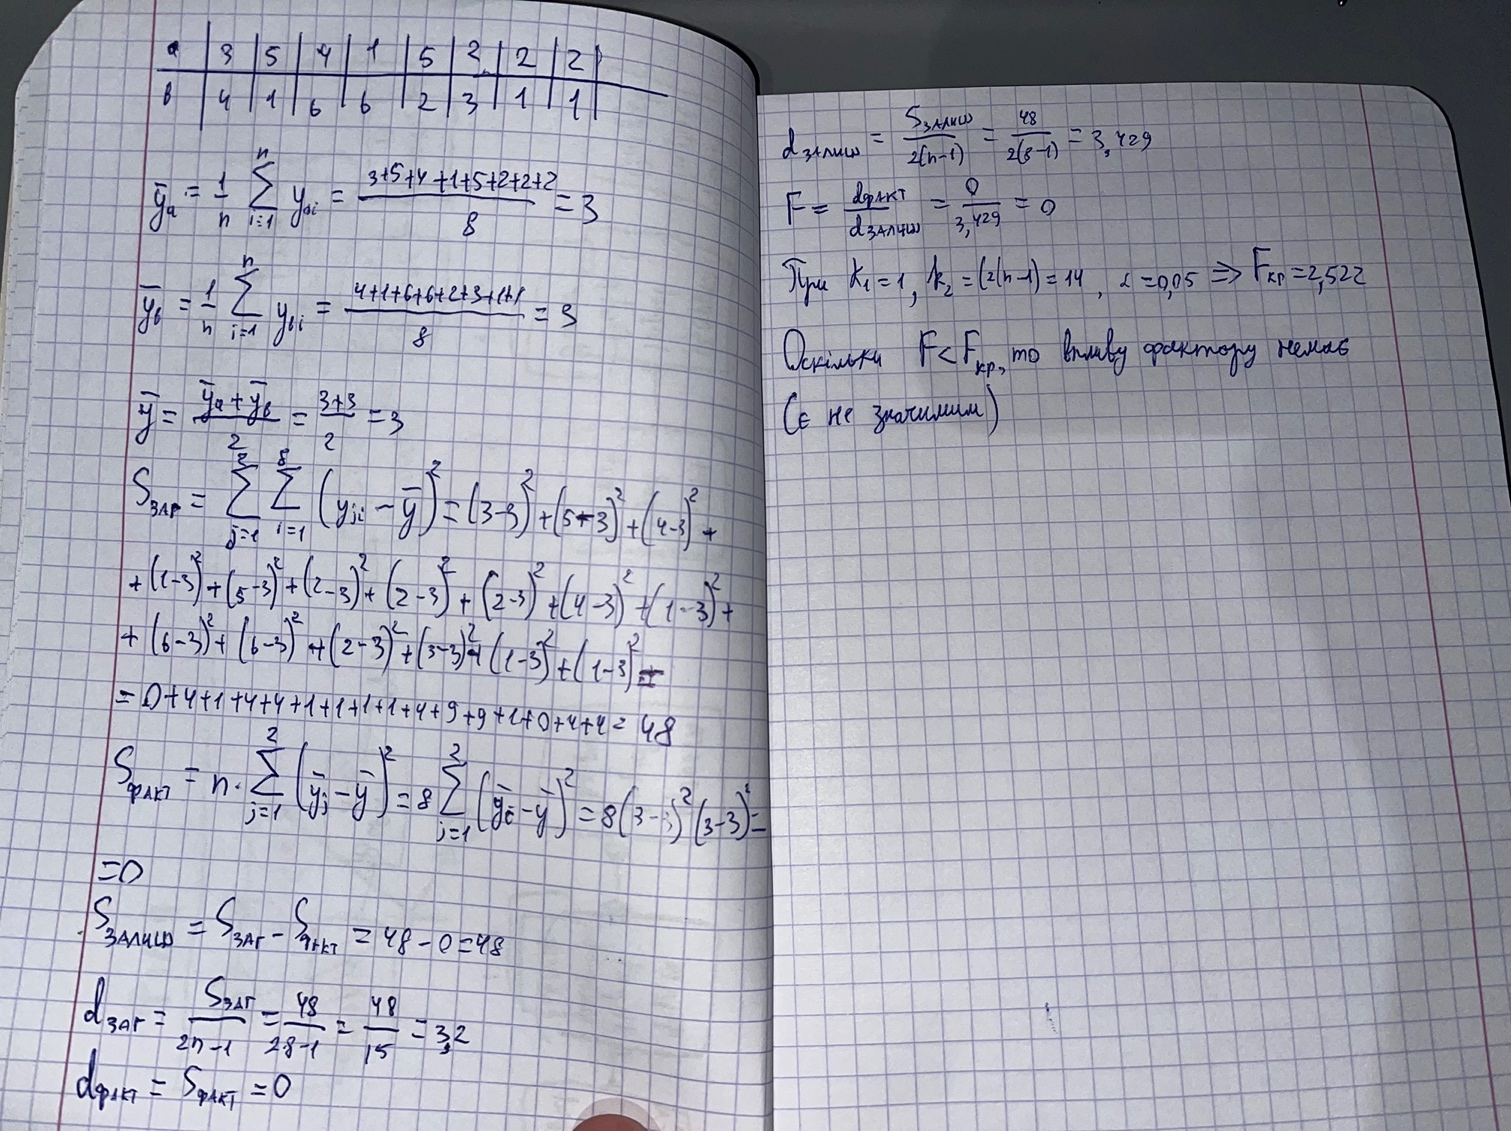 a | 3 | 5 | 4 | 1 | 5 | 2 | 2 | 2 |
b | 4 | 1 | 6 | 6 | 2 | 3 | 1 | 1 |
ȳₐ = 1/n ∑ᵢ₌₁ⁿ yₐᵢ = (3+5+4+1+5+2+2+2)/8 = 3
ȳ_b = 1/n ∑ᵢ₌₁ⁿ y_bᵢ = (4+1+6+6+2+3+1+1)/8 = 3
ȳ = (ȳₐ + ȳ_b)/2 = (3+3)/2 = 3
S_ЗАГ = ∑ⱼ₌₁² ∑ᵢ₌₁⁸ (yⱼᵢ − ȳ)² = (3−3)² + (5−3)² + (4−3)² +
+ (1−3)² + (5−3)² + (2−3)² + (2−3)² + (2−3)² + (4−3)² + (1−3)² +
+ (6−3)² + (6−3)² + (2−3)² + (3−3)² + (1−3)² + (1−3)² =
= 0+4+1+4+4+1+1+1+1+4+9+9+1+0+4+4 = 48
S_ФАКТ = n · ∑ⱼ₌₁² (ȳⱼ − ȳ)² = 8 ∑ⱼ₌₁² (ȳᵢ − ȳ)² = 8(3−3)²(3−3)² =
= 0
S_ЗАЛИШ = S_ЗАГ − S_ФАКТ = 48 − 0 = 48
d_ЗАГ = S_ЗАГ/(2n−1) = 48/(2·8−1) = 48/15 = 3,2
d_ФАКТ = S_ФАКТ = 0
d_ЗАЛИШ = S_ЗАЛИШ/(2(n−1)) = 48/(2(8−1)) = 3,429
F = d_ФАКТ/d_ЗАЛИШ = 0/3,429 = 0
При k₁ = 1, k₂ = (2(n−1) = 14, α = 0,05 ⇒ F_кр = 2,522
Оскільки F < F_кр, то впливу фактору немає
(є не значимим)